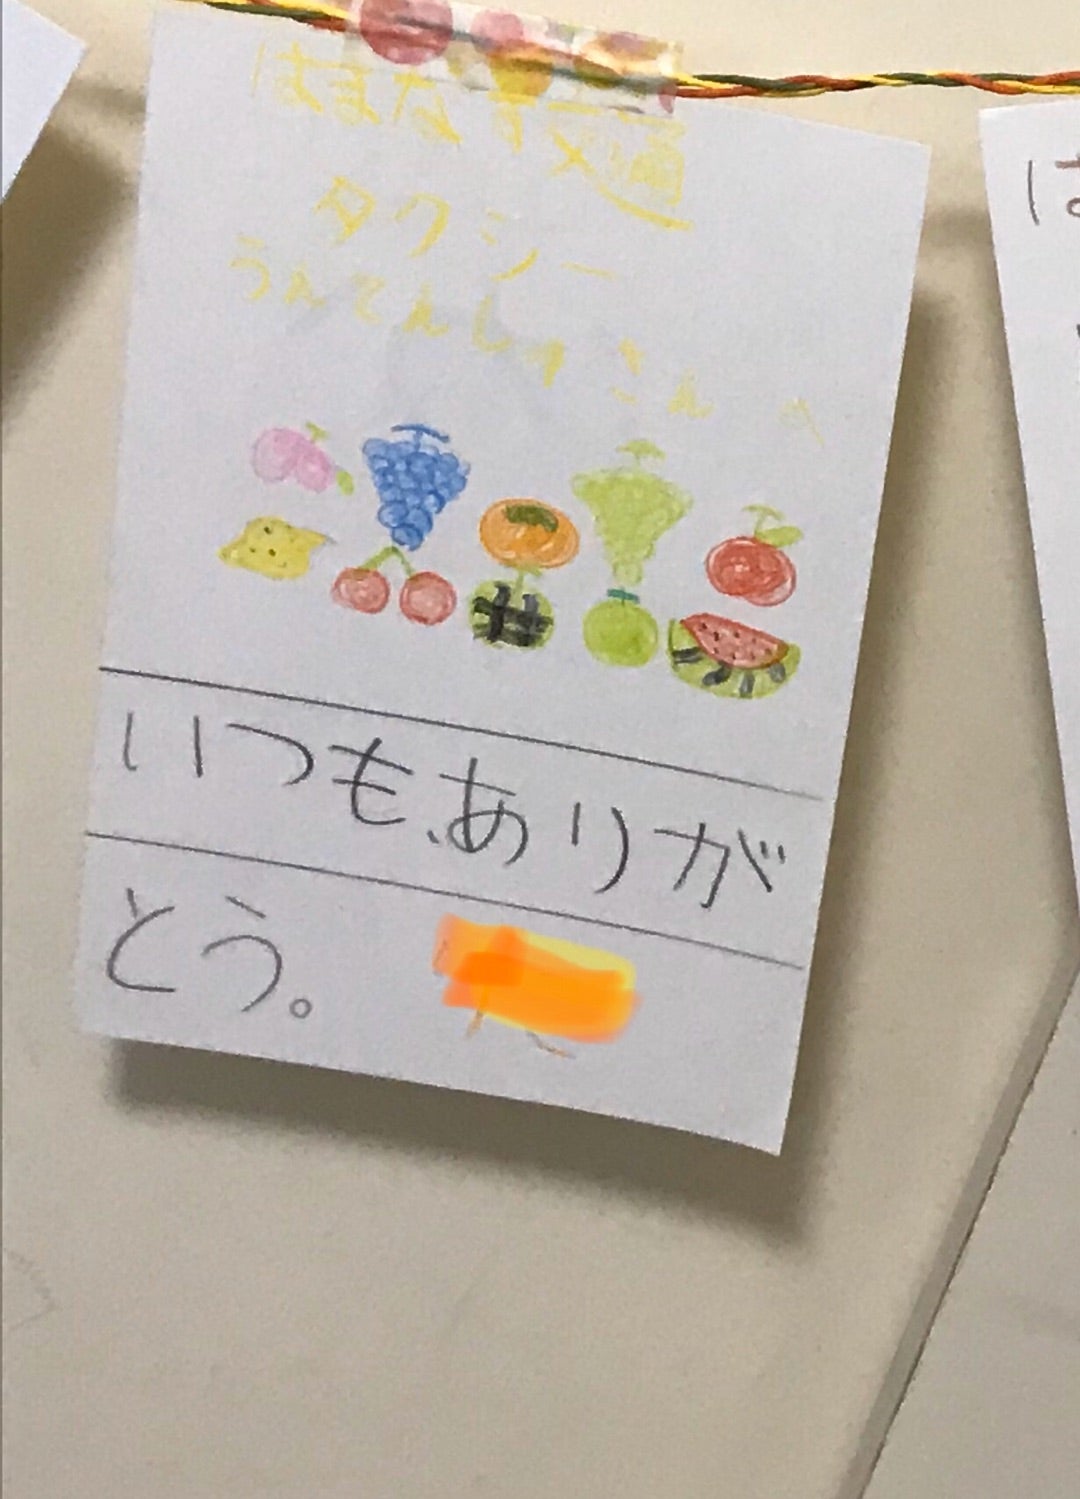 はまなす交通
タクシー
うんてんしゅさんへ
いつも、ありが
とう。
は